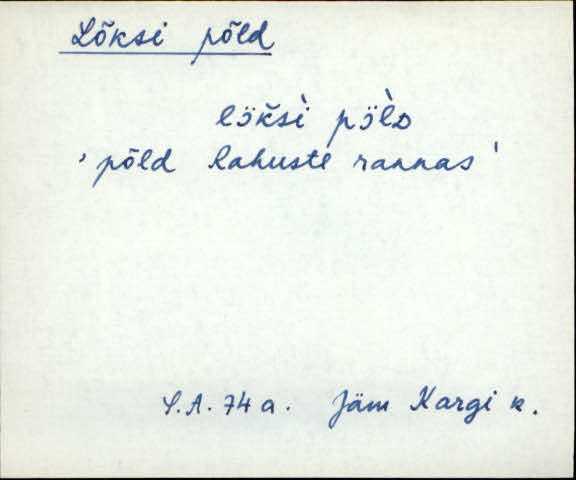 Lõksi põld
lök̆si̇̀ pöl̀D
'põld lahuste rannas'
S.A. 74 a. Jäm Kargi k.